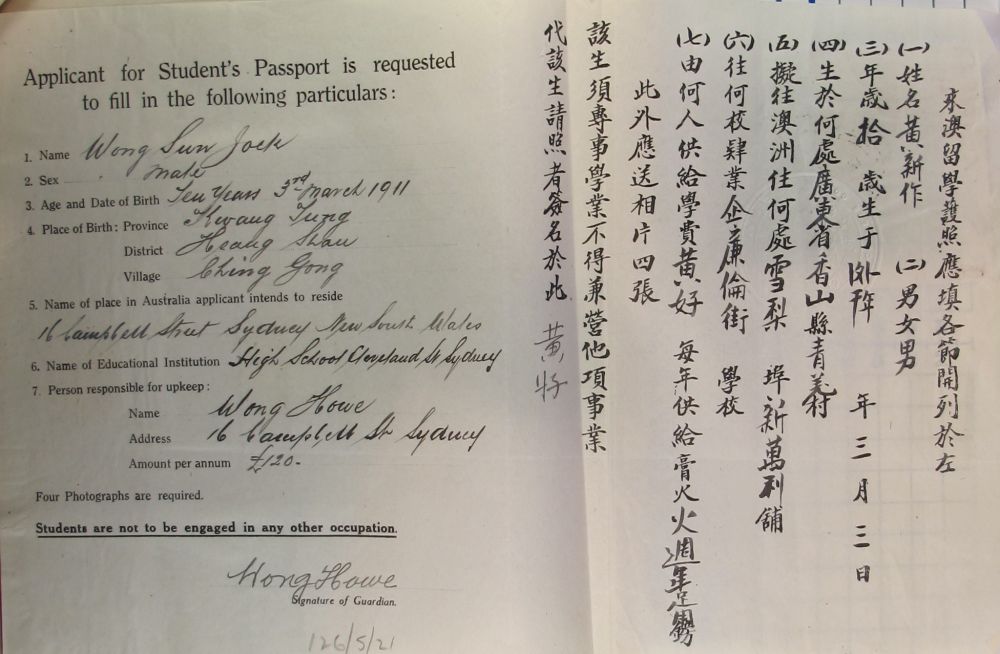 Applicant for Student's Passport is requested
to fill in the following particulars:
1. Name Wong Sun Jock
2. Sex male
3. Age and Date of Birth Ten Years 3rd March 1911
4. Place of Birth: Province Kwang Tung
District Heang Shan
Village Ching Gong
5. Name of place in Australia applicant intends to reside
16 Campbell Street Sydney New South Wales
6. Name of Educational Institution High School Cleveland St Sydney
7. Person responsible for upkeep:
Name Wong Howe
Address 16 Campbell St Sydney
Amount per annum £120-
Four Photographs are required.
Students are not to be engaged in any other occupation.
Wong Howe
Signature of Guardian.
126/5/21
來澳留學護照應填各節開列於左
(一)姓名黃新作 (二)男女男
(三)年歲拾歲生于 年三月三日
(四)生於何處廣東省香山縣青羌村
(五)擬往澳洲住何處雪梨埠新萬利舖
(六)往何校肄業企廉倫街學校
(七)由何人供給學費黃好 每年供給膏火
此外應送相片四張
該生須專事學業不得兼營他項事業
代該生請照者簽名於此 黃好